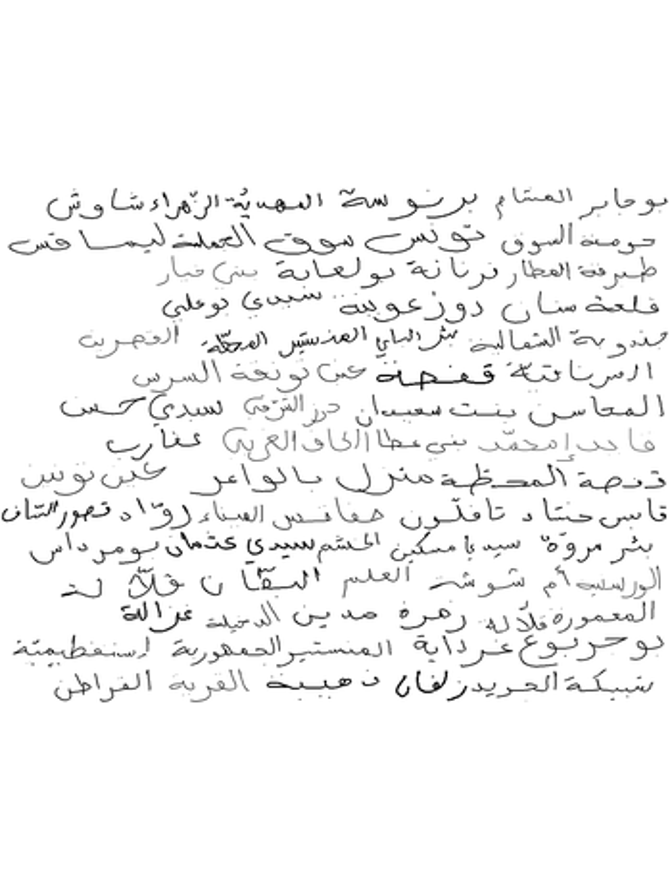 بوجابر الهشام برنوسة المهديّة الزهراء شاوش
حومة السوق تونس سوق الجملة ليماقس
طبرقة العطار فرنانة بولعابة بني خيار
قلعة سنان دوز عوينة سيدي بوعلي
جندوبة الشمالية بئر الباي المنستير المحطّة القصرين
قفصة عين نونفة السرس
المحاسن بنت سعيدان لسيدي حسين
إمحمّد بني عطا الحاق الغربي عقارب
قفصة المحطّة منزل بالواعر عين نونين
قابس حشاد تافلّون صفاقس الميناء روّاد قصور الساف
بئر مروّة سيدي مسكين سيدي عثمان بومرداس
أم شوشة العلم البقّان ڨلّالة
المعمورة ڨلّالة زهرة مدين الدخيلة غزالة
بوجربوع غرداية المنستير الجمهورية
شبيكة الجريد زلفان ذهيبة القرية الفراطن